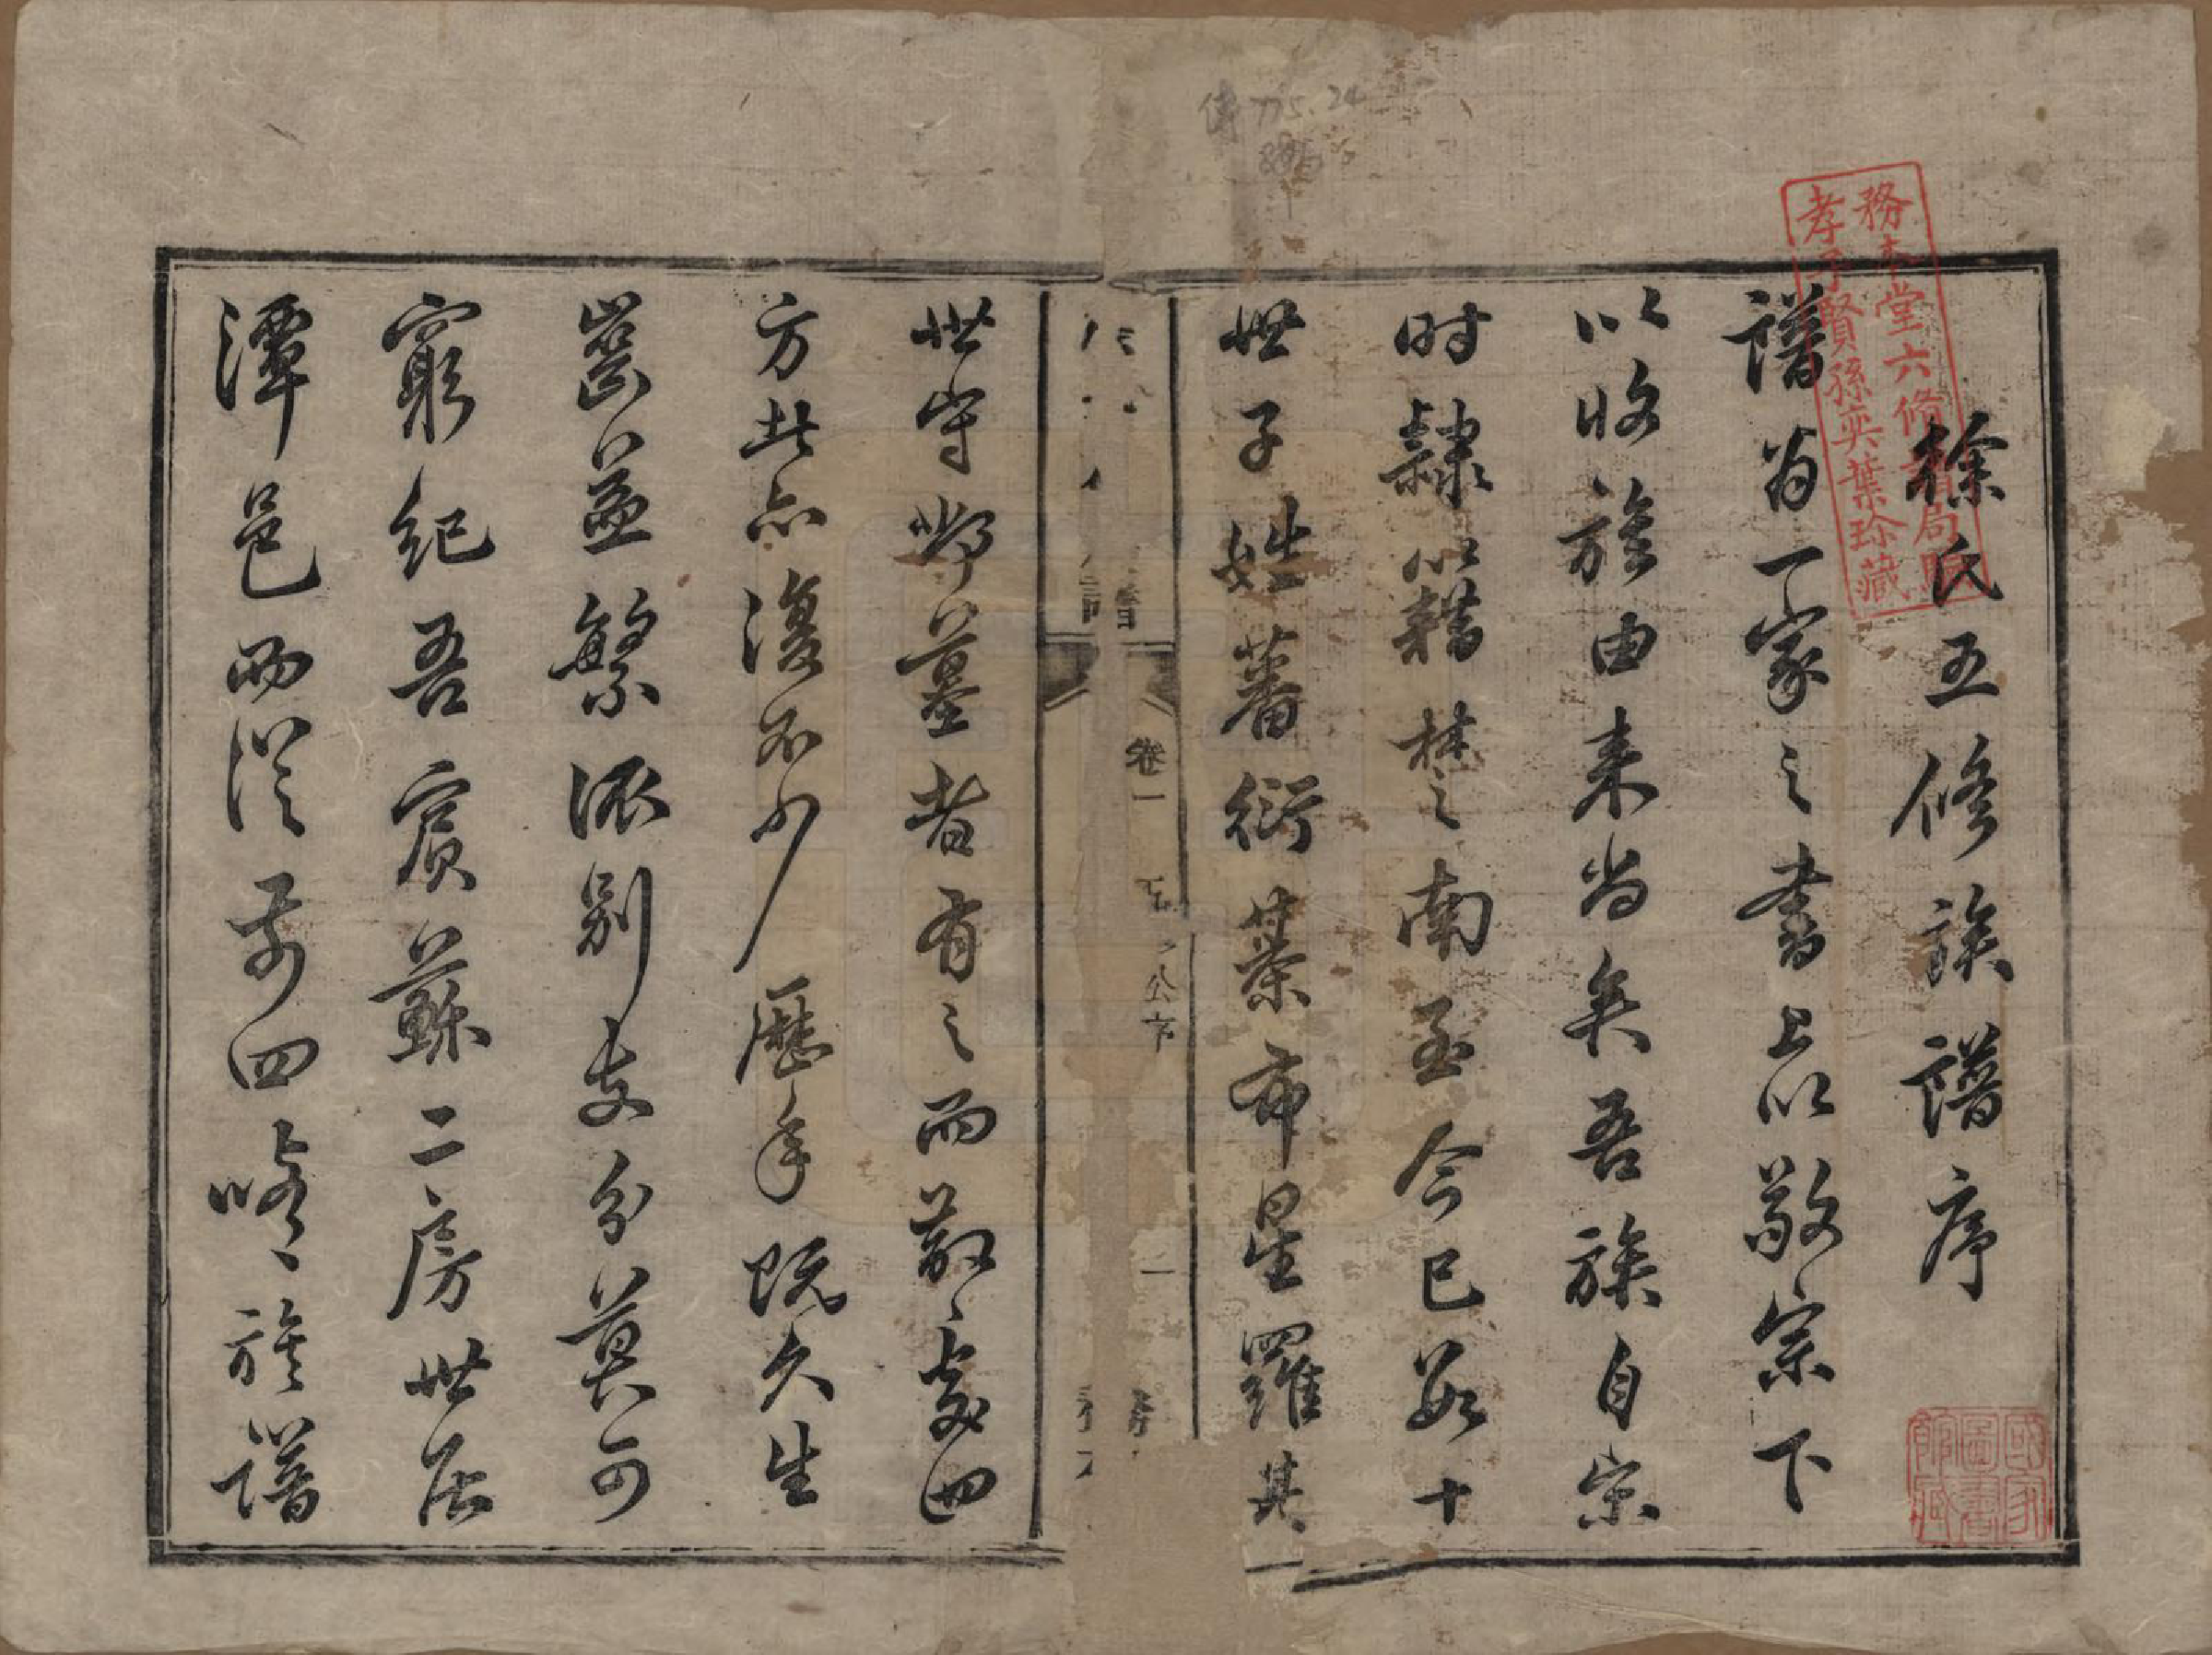 徐氏五修族譜序
譜為一家之書上以敬宗下
以收族由来尚矣吾族自宗
时隸籍楚之南至今已數十
世子姓蕃衍棊布星羅其
世守邱墓者有之而散處四
方者亦復不少歷年既久生
齒益繁派別支分莫可
窮紀吾賓蘇二房世居
潭邑西從前四修族譜
務本堂六修譜局賜
孝子賢孫奕葉珍藏
國家圖書館藏
譜
卷一
公下
一
775.24